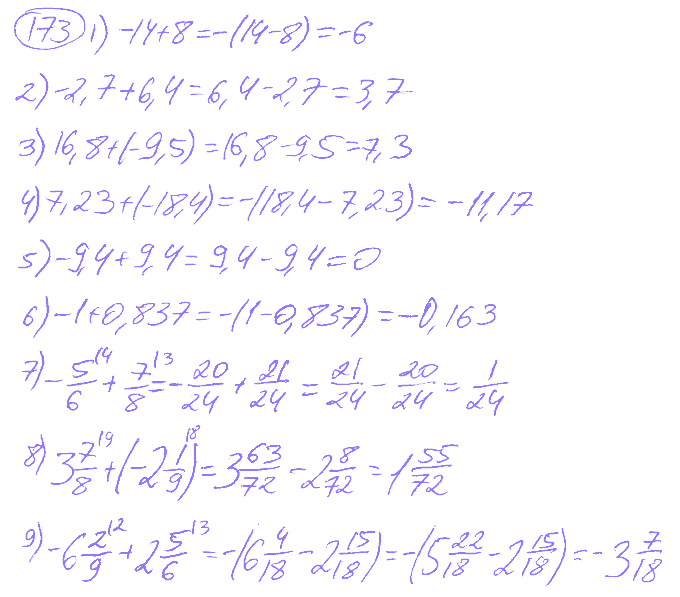 173 1) -14+8=-(14-8)=-6
2) -2,7+6,4=6,4-2,7=3,7
3) 16,8+(-9,5)=16,8-9,5=7,3
4) 7,23+(-18,4)=-(18,4-7,23)=-11,17
5) -9,4+9,4=9,4-9,4=0
6) -1+0,837=-(1-0,837)=-0,163
7) -5/6^{\4}+7/8^{\3}=-20/24+21/24=21/24-20/24=1/24
8) 3 7/8^{\9}+(-2 1/9^{\8})=3 63/72-2 8/72=1 55/72
9) -6 2/9^{\2}+2 5/6^{\3}=-(6 4/18-2 15/18)=-(5 22/18-2 15/18)=-3 7/18